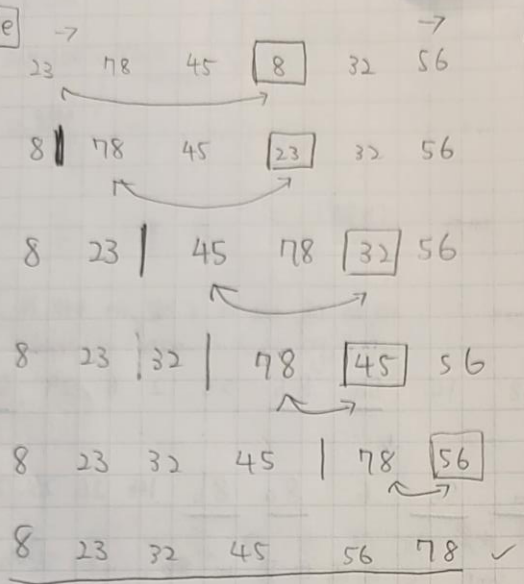 e
23 78 45 8 32 56
8 | 78 45 23 32 56
8 23 | 45 78 32 56
8 23 32 | 78 45 56
8 23 32 45 | 78 56
8 23 32 45 56 78 ✓